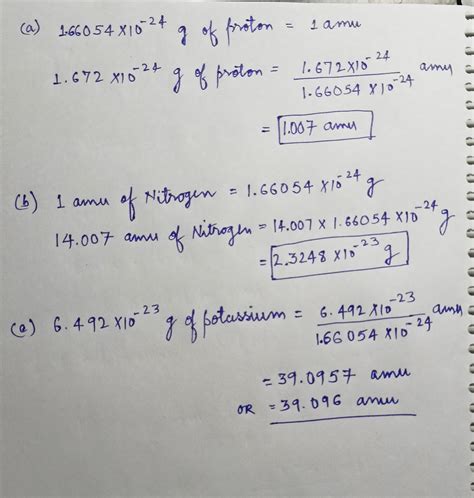 (a) 1.66054 × 10⁻²⁴ g of proton = 1 amu
1.672 × 10⁻²⁴ g of proton = 1.672 × 10⁻²⁴ / 1.66054 × 10⁻²⁴ amu
= 1.007 amu
(b) 1 amu of Nitrogen = 1.66054 × 10⁻²⁴ g
14.007 amu of Nitrogen = 14.007 × 1.66054 × 10⁻²⁴ g
= 2.3248 × 10⁻²³ g
(c) 6.492 × 10⁻²³ g of potassium = 6.492 × 10⁻²³ / 1.66054 × 10⁻²⁴ amu
= 39.0957 amu
OR = 39.096 amu